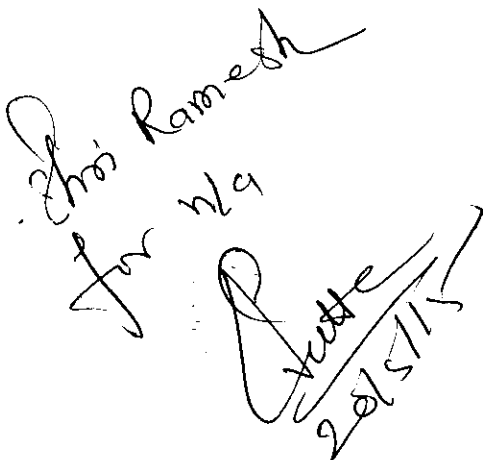 Shri Ramesh
for n/a
20/5/15